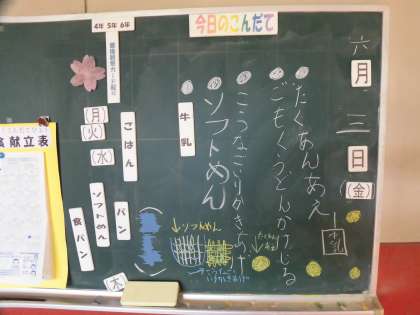 今日のこんだて
六月三日(金)
たくあんあえ
ごもくうどんかけじる
こうなごいりかきあげ
ソフトめん
牛乳
牛乳
ソフトめん
4年 5年 6年
(月)
(火)
(水)
ごはん
パン
ソフトめん
食パン
(木)
献立表